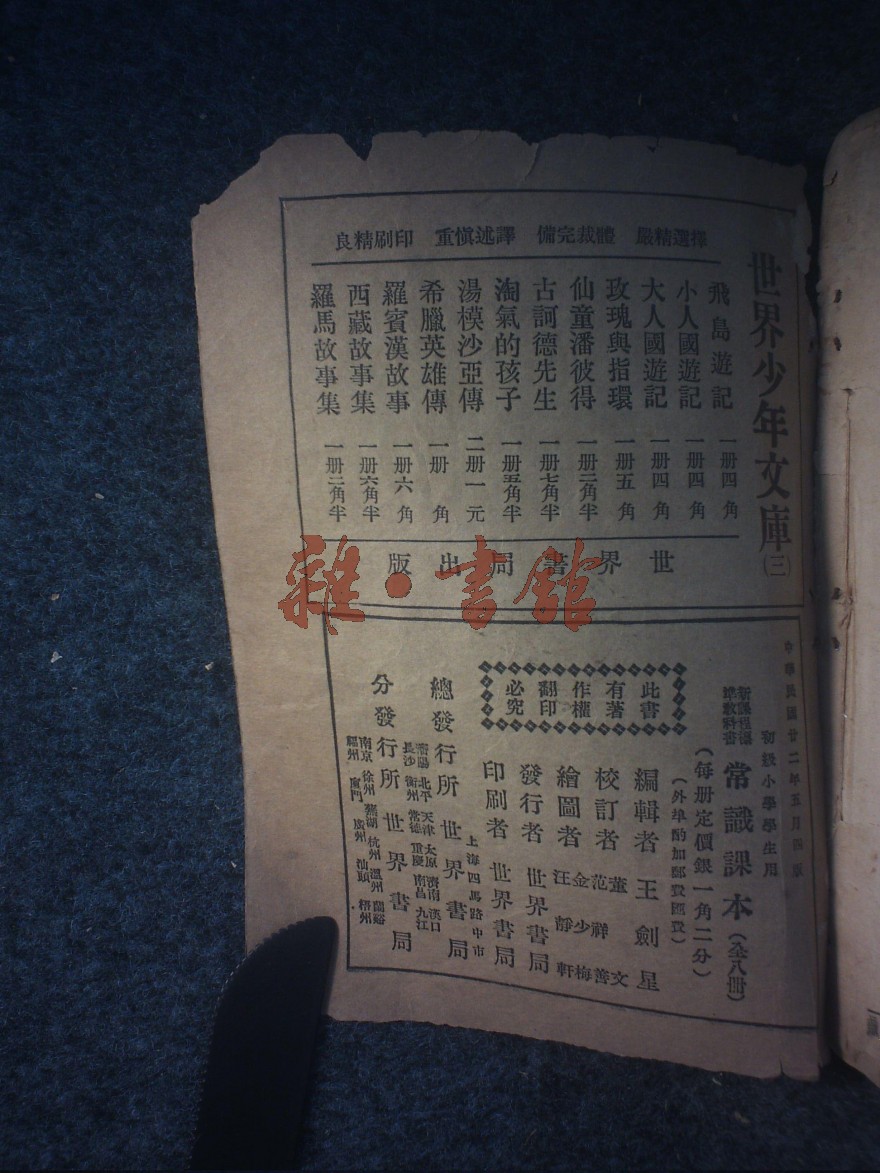 世界少年文庫(三)
擇選精嚴 體裁完備 譯述愼重 印刷精良
飛島遊記 一册四角
小人國遊記 一册四角
大人國遊記 一册四角
玫瑰與指環 一册五角
仙童潘彼得 一册二角半
古訶德先生 一册七角半
淘氣的孩子 一册五角半
湯模沙亞傳 二册一元
希臘英雄傳 一册 角
羅賓漢故事 一册六角
西藏故事集 一册六角半
羅馬故事集 一册二角半
世界書局出版
雜·書館
中華民國廿二年五月四版
初級小學學生用
新課程標準教科書 常識課本(全八冊)
(每册定價銀一角二分)
(外埠酌加郵費匯費)
此書有著作權翻印必究
編輯者 王劍星
校訂者 董文 范祥善
繪圖者 金少梅 汪靜軒
發行者 世界書局
印刷者 世界書局
上海四馬路中市
總發行所 世界書局
瀋陽 北平 天津 太原 濟南 漢口
長沙 衡州 常德 重慶 南昌 九江
分發行所 世界書局
南京 徐州 蕪湖 杭州 溫州 蘭谿
福州 廈門 廣州 汕頭 梧州